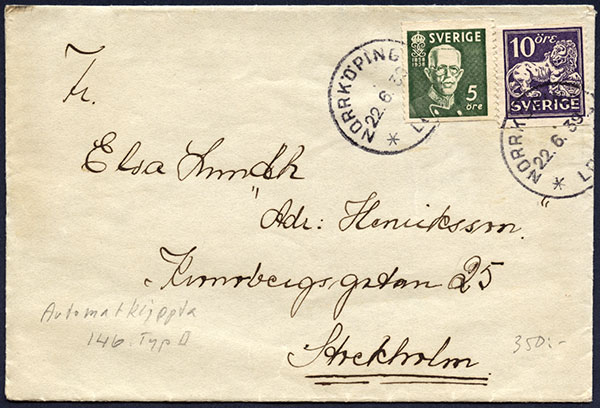 SVERIGE
1858
1938
5
öre
10 öre
SVERIGE
NORRKÖPING
22.6.39
NORRK
22.6.39
Fr.
Elsa
Adr: Henriksson
Kronobergsgatan 25
Stockholm
Automatklippta
146. Typ II
350:-